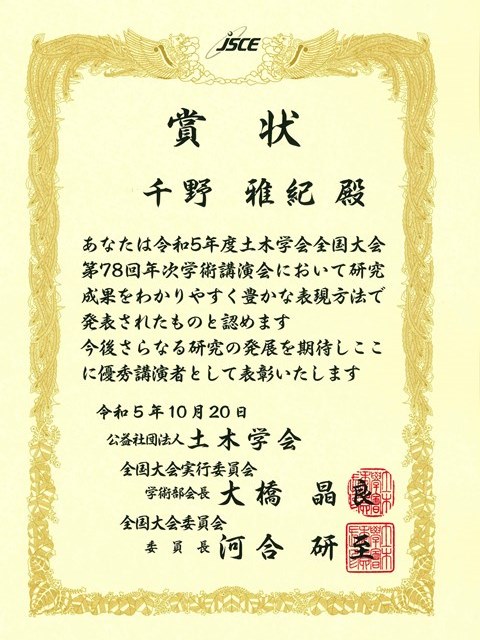 JSCE
賞 状
千野 雅紀 殿
あなたは令和5年度土木学会全国大会
第78回年次学術講演会において研究
成果をわかりやすく豊かな表現方法で
発表されたものと認めます
今後さらなる研究の発展を期待しここ
に優秀講演者として表彰いたします
令和5年10月20日
公益社団法人 土木学会
全国大会実行委員会
学術部会長 大橋 晶良
全国大会委員会
委員長 河合 研至